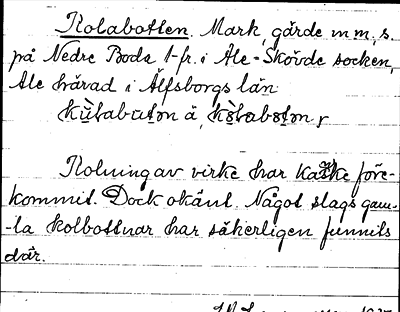 Kolabotten. Mark, gärde m m, s.
på Nedre Boda 1-fr. i Ale-Skövde socken,
Ale härad i Älfsborgs län
Kolning av virke har kanske före-
kommit. Dock okänt. Något slags gam-
-la kolbottnar har säkerligen funnits
där.